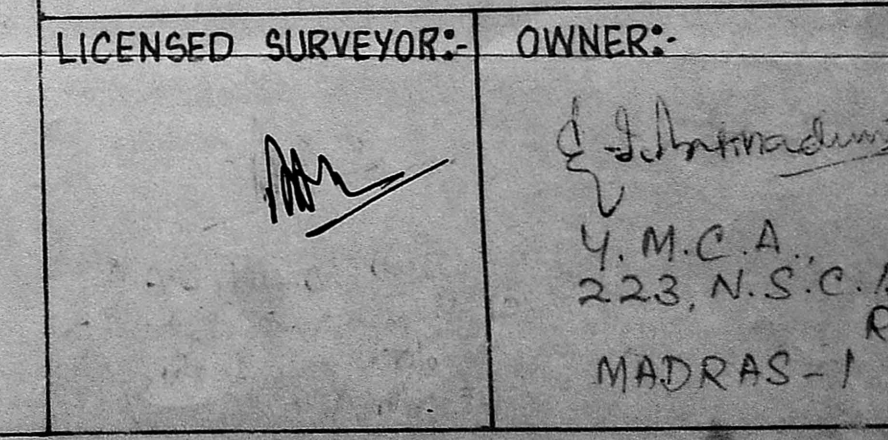 LICENSED SURVEYOR:-
OWNER:-
Y.M.C.A.,
223, N.S.C.
MADRAS-1